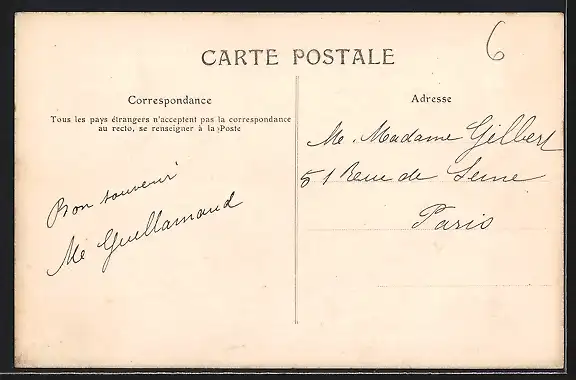 6
CARTE POSTALE
Correspondance
Tous les pays étrangers n'acceptent pas la correspondance
au recto, se renseigner à la Poste
Bon souvenir
Me Guillamaud
Adresse
Me. Madame Gilbert
51 Reue de Seine
Paris